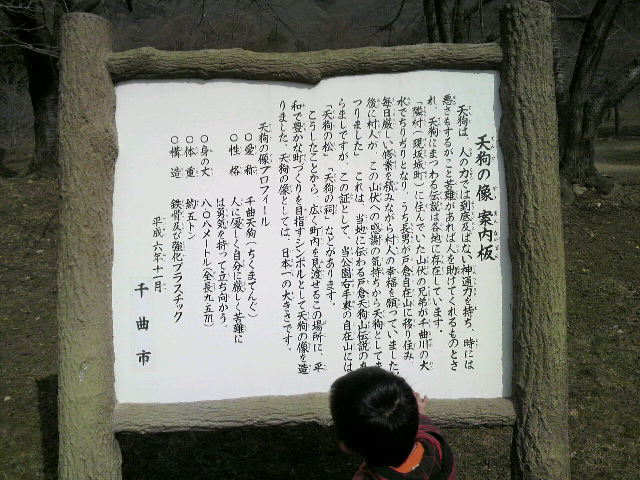 天狗の像 案内板
天狗は、人の力では到底及ばない神通力を持ち、時には
悪さもするがこと苦難があれば人を助けてくれるものとさ
れ、天狗にまつわる伝説は各地に存在しています。
「隣村（現坂城町）に住んでいた山伏の兄弟が千曲川の大
水でちりぢりとなり、うち長男が戸倉自在山に移り住み
毎日厳しい修業を積みながら村人の幸福を願っていました。
後に村人が、この山伏への感謝の気持ちから天狗としてま
つりました」 これは、当地に伝わる戸倉天狗山伝説の
らましですが、この証として、当公園右手東の自在山には
「天狗の松」「天狗の祠」などがあります。
こうしたことから、広く町内を見渡せるこの場所に、平
和で豊かな町づくりを目指すシンボルとして天狗の像を造
りました。天狗の像としては、日本一の大きさです。
天狗の像プロフィール
○愛称 千曲天狗（ちくまてんぐ）
○性格 人に優しく自分に厳しく苦難に
は勇気を持って立ち向かう
○身の丈 八・〇八メートル（全長九・五m）
○体重 約五トン
○構造 鉄骨及び強化プラスチック
平成六年十一月
千曲市